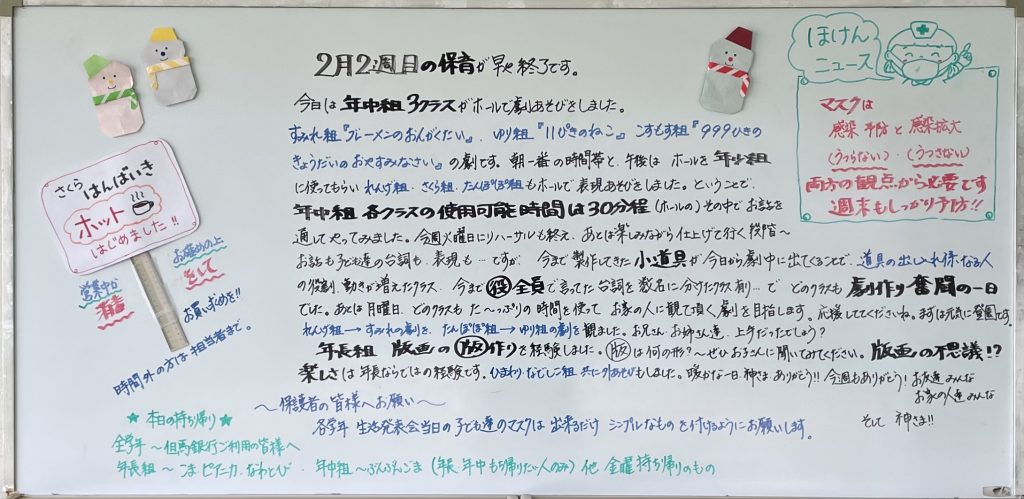 2月2週目の保育が早や終了です。
今日は年中組3クラスがホールで劇あそびをしました。
すみれ組『ブレーメンのおんがくたい』、ゆり組『11ぴきのねこ』こすもす組『999ひきの
きょうだいのおやすみなさい』の劇です。朝一番の時間帯と、午後は ホールを年少組
に使ってもらい れんげ組・さくら組・たんぽぽ組もホールで表現あそびをしました。ということで、
年中組 各クラスの使用可能時間は30分程(ホールの)その中でお話を
通してやってみました。今週火曜日にリハーサルも終え、あとは楽しみながら仕上げて行く段階〜
お話も子ども達の台詞も、表現も…ですが、今まで製作してきた小道具が今日から劇中に出てくることで、道具の出し入れ係なる人
の役割、動きが増えたクラス、今まで役全員で言ってた台詞を数名に分けたクラス有り…で どのクラスも劇作り奮闘の一日
でした。あとは月曜日、どのクラスも た〜っぷりの時間を使って お家の人に観て頂く劇を目指します。応援しててくださいね。まずは元気に登園です。
れんげ組→すみれの劇を、たんぽぽ組→ゆり組の劇を観ました。お兄さん、お姉さん達、上手だったでしょう?
年長組 版画の版作りを経験しました。版は何の形?〜ぜひお子さんに聞いてみてください。版画の不思議!?
楽しさは年長ならではの経験です。ひまわり・なでしこ組 共に外あそびもしました。暖かな一日、神さまありがとう!! 今週もありがとう! お友達みんな
お家の人達みんな
そして 神さま!!
ほけん
ニュース
マスクは
感染予防と感染拡大
(うつらない)・(うつさない)
両方の観点から必要です
週末もしっかり予防!!
さくら
はんばいき
ホット
はじめました!!
営業中か
確認の上
そして
お買い求めを!!
時間外の方は担当者まで。
〜保護者の皆様へお願い〜
各学年 生活発表会当日の子ども達のマスクは 出来るだけ シンプルなものを付けるようにお願いします。
★本日の持ち帰り★
全学年〜但馬銀行ご利用の皆様へ
年長組〜こま・ピアニカ・なわとび・年中組〜ぶんぶんごま(年長・年中もち帰りたい人のみ) 他 金曜持ち帰りのもの